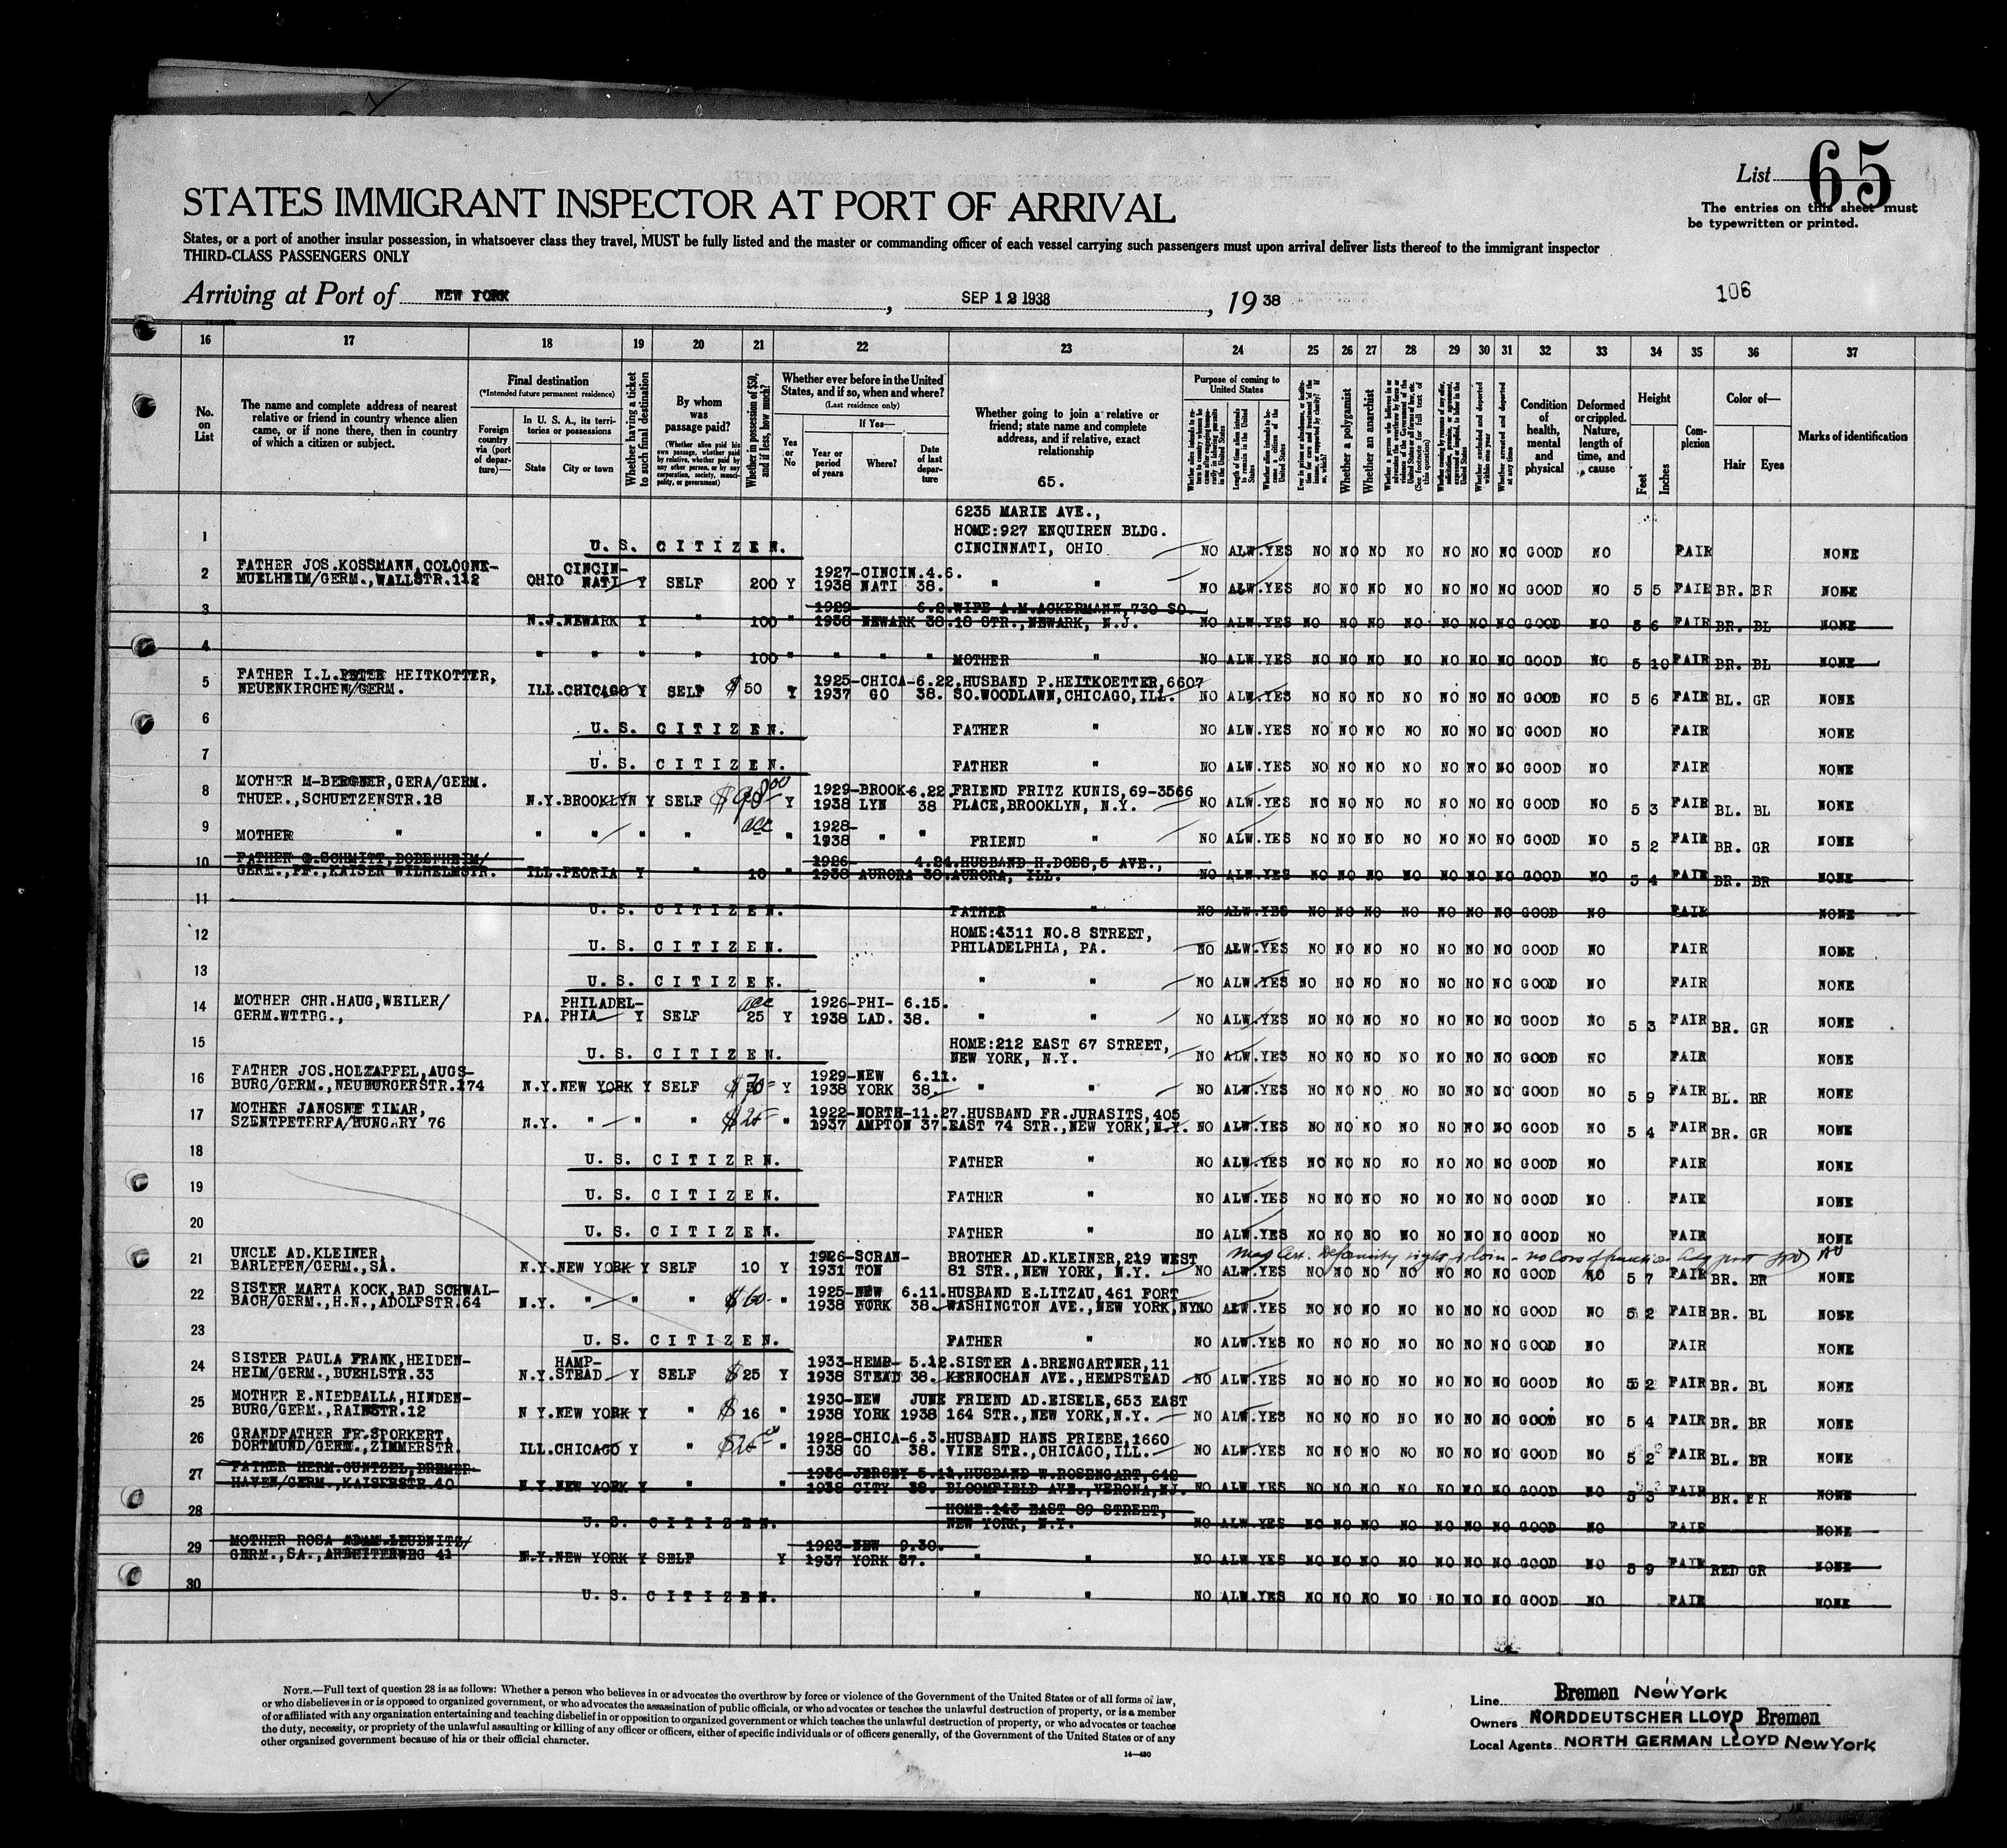 List 65
STATES IMMIGRANT INSPECTOR AT PORT OF ARRIVAL
The entries on this sheet must
be typewritten or printed.
States, or a port of another insular possession, in whatsoever class they travel, MUST be fully listed and the master or commanding officer of each vessel carrying such passengers must upon arrival deliver lists thereof to the immigrant inspector
THIRD-CLASS PASSENGERS ONLY
Arriving at Port of NEW YORK, SEP 12 1938, 19 38
106
16 17 18 19 20 21 22 23 24 25 26 27 28 29 30 31 32 33 34 35 36 37
No. on List
The name and complete address of nearest relative or friend in country whence alien came, or if none there, then in country of which a citizen or subject.
Final destination
(*Intended future permanent residence)
Foreign country via (port of departure)—
In U. S. A., its territories or possessions
State City or town
Whether having a ticket to such final destination
By whom was passage paid?
(Whether alien paid his own passage, whether paid by relative, whether paid by any other person, or by any corporation, society, municipality, or government)
Whether in possession of $50, and if less, how much?
Whether ever before in the United States, and if so, when and where?
(Last residence only)
If Yes—
Yes or No
Year or period of years
Where?
Date of last departure
Whether going to join a relative or friend; state name and complete address, and if relative, exact relationship
65.
Purpose of coming to United States
Length of time alien intends to remain in the United States
Whether alien intends to become a citizen of the United States
Whether a polygamist
Whether an anarchist
Condition of health, mental and physical
Deformed or crippled. Nature, length of time, and cause
Height
Feet Inches
Complexion
Color of—
Hair Eyes
Marks of identification
6235 MARIE AVE.,
HOME:927 ENQUIREN BLDG.
1 U. S. CITIZEN. CINCINNATI, OHIO NO ALW.YES NO NO NO NO NO NO NO GOOD NO FAIR NONE
FATHER JOS.KOSSMANN,COLOGNE- CINCIN- 1927-CINCIN.4.6.
2 MUELHEIM/GERM.,WALLSTR.112 OHIO NATI Y SELF 200 Y 1938 NATI 38. " " NO ALW.YES NO NO NO NO NO NO NO GOOD NO 5 5 FAIR BR. BR NONE
1929- 6.2.WIFE A.M.ACKERMANN,730 SO.
3 N.J.NEWARK Y " 100 " 1938 NEWARK 38.18 STR.,NEWARK, N.J. NO ALW.YES NO NO NO NO NO NO NO GOOD NO 5 6 FAIR BR. BL NONE
4 " " " " 100 " " " " MOTHER " NO ALW.YES NO NO NO NO NO NO NO GOOD NO 5 10 FAIR BR. BL NONE
FATHER I.L.PETER HEITKOTTER, 1925-CHICA-6.22.HUSBAND P.HEITKOETTER,6607
5 NEUENKIRCHEN/GERM. ILL.CHICAGO Y SELF $ 50 Y 1937 GO 38. SO.WOODLAWN,CHICAGO,ILL. NO ALW.YES NO NO NO NO NO NO NO GOOD NO 5 6 FAIR BL. GR NONE
6 U. S. CITIZEN. FATHER " NO ALW.YES NO NO NO NO NO NO NO GOOD NO FAIR NONE
7 U. S. CITIZEN. FATHER " NO ALW.YES NO NO NO NO NO NO NO GOOD NO FAIR NONE
MOTHER M-BERGNER,GERA/GERM. 1929-BROOK-6.22.FRIEND FRITZ KUNIS,69-3566
8 THUER.,SCHUETZENSTR.18 N.Y.BROOKLYN Y SELF Y 1938 LYN 38 PLACE,BROOKLYN, N.Y. NO ALW.YES NO NO NO NO NO NO NO GOOD NO 5 3 FAIR BL. BL NONE
acc 1928-
9 MOTHER " " " " " " 1938 " " FRIEND " NO ALW.YES NO NO NO NO NO NO NO GOOD NO 5 2 FAIR BR. GR NONE
FATHER G.SCHMITT,BODENHEIM/ 1926- 4.24.HUSBAND H.DOES,5 AVE.,
10 GERM.,PF.,KAISER WILHELMSTR. ILL.PEORIA Y " 10 " 1938 AURORA 38.AURORA, ILL. NO ALW.YES NO NO NO NO NO NO NO GOOD NO 5 4 FAIR BR. BR NONE
11 U. S. CITIZEN. FATHER " NO ALW.YES NO NO NO NO NO NO NO GOOD NO FAIR NONE
HOME:4311 NO.8 STREET,
12 U. S. CITIZEN. PHILADELPHIA, PA. NO ALW.YES NO NO NO NO NO NO NO GOOD NO FAIR NONE
13 U. S. CITIZEN. " " NO ALW.YES NO NO NO NO NO NO NO GOOD NO FAIR NONE
MOTHER CHR.HAUG,WEILER/ PHILADEL- acc 1926-PHI- 6.15.
14 GERM.WTTBG., PA. PHIA Y SELF 25 Y 1938 LAD. 38. " " NO ALW.YES NO NO NO NO NO NO NO GOOD NO 5 3 FAIR BR. GR NONE
HOME:212 EAST 67 STREET,
15 U. S. CITIZEN. NEW YORK, N.Y. NO ALW.YES NO NO NO NO NO NO NO GOOD NO FAIR NONE
FATHER JOS.HOLZAPFEL,AUGS- 1929-NEW 6.11.
16 BURG/GERM.,NEUBURGERSTR.174 N.Y.NEW YORK Y SELF Y 1938 YORK 38. " " NO ALW.YES NO NO NO NO NO NO NO GOOD NO 5 9 FAIR BL. BR NONE
MOTHER JANOSNE TIMAR, 1922-NORTH-11.27.HUSBAND FR.JURASITS,405
17 SZENTPETERFA/HUNGARY 76 N.Y. " " " $25 " 1937 AMPTON 37.EAST 74 STR.,NEW YORK,N.Y. NO ALW.YES NO NO NO NO NO NO NO GOOD NO 5 4 FAIR BR. GR NONE
18 U. S. CITIZRN. FATHER " NO ALW.YES NO NO NO NO NO NO NO GOOD NO FAIR NONE
19 U. S. CITIZEN. FATHER " NO ALW.YES NO NO NO NO NO NO NO GOOD NO FAIR NONE
20 U. S. CITIZEN. FATHER " NO ALW.YES NO NO NO NO NO NO NO GOOD NO FAIR NONE
UNCLE AD.KLEINER, 1926-SCRAN- BROTHER AD.KLEINER,219 WEST
21 BARLEFEN/GERM.,SA. N.Y.NEW YORK Y SELF 10 Y 1931 TON 81 STR.,NEW YORK, N.Y. NO ALW.YES NO NO NO NO NO NO NO GOOD NO 5 7 FAIR BR. BR NONE
SISTER MARTA KOCK,BAD SCHWAL- 1925-NEW 6.11.HUSBAND E.LITZAU,461 FORT
22 BACH/GERM.,H.N.,ADOLFSTR.64 N.Y. " " " $60 " 1938 YORK 38.WASHINGTON AVE.,NEW YORK,NY. NO ALW.YES NO NO NO NO NO NO NO GOOD NO 5 2 FAIR BR. BL NONE
23 U. S. CITIZEN. FATHER " NO ALW.YES NO NO NO NO NO NO NO GOOD NO FAIR NONE
SISTER PAULA FRANK,HEIDEN- HAMP- 1933-HEMP- 5.12.SISTER A.BRENGARTNER,11
24 HEIM/GERM.,BUEHLSTR.33 N.Y.STEAD Y SELF $25 Y 1938 STEAD 38. KERNOCHAN AVE.,HEMPSTEAD NO ALW.YES NO NO NO NO NO NO NO GOOD NO 5 2 FAIR BR. BL NONE
MOTHER E.NIEDBALLA,HINDEN- 1930-NEW JUNE FRIEND AD.EISELE,653 EAST
25 BURG/GERM.,RAINSTR.12 N Y.NEW YORK Y " $ 16 " 1938 YORK 1938 164 STR.,NEW YORK,N.Y. NO ALW.YES NO NO NO NO NO NO NO GOOD NO 5 4 FAIR BR. BR NONE
GRANDFATHER FR.SPORKERT, 1928-CHICA-6.3.HUSBAND HANS PRIEBE,1660
26 DORTMUND/GERM.,ZIMMERSTR. ILL.CHICAGO Y " $25 " 1938 GO 38. VINE STR.,CHICAGO,ILL. NO ALW.YES NO NO NO NO NO NO NO GOOD NO 5 2 FAIR BL. BR NONE
FATHER HERM.GUNTZEL,BREMER- 1936-JERSEY 5.11.HUSBAND W.ROSENGART,642
27 HAVEN/GERM.,KAISERSTR.40 N.Y.NEW YORK Y " " 1938 CITY 38. BLOOMFIELD AVE.,VERONA,NJ. NO ALW.YES NO NO NO NO NO NO NO GOOD NO 5 3 FAIR BR. BR NONE
HOME:143 EAST 89 STREET,
28 U. S. CITIZEN. NEW YORK, N.Y. NO ALW.YES NO NO NO NO NO NO NO GOOD NO FAIR NONE
MOTHER ROSA ADAM.LEUBNITZ/ 1923-NEW 9.30.
29 GERM.,SA.,ARBEITERWEG 41 N.Y.NEW YORK Y SELF Y 1937 YORK 37. " " NO ALW.YES NO NO NO NO NO NO NO GOOD NO 5 9 FAIR RED GR NONE
30 U. S. CITIZEN. " " NO ALW.YES NO NO NO NO NO NO NO GOOD NO FAIR NONE
NOTE.—Full text of question 28 is as follows: Whether a person who believes in or advocates the overthrow by force or violence of the Government of the United States or of all forms of law,
or who disbelieves in or is opposed to organized government, or who advocates the assassination of public officials, or who advocates or teaches the unlawful destruction of property, or is a member
of or affiliated with any organization entertaining and teaching disbelief in or opposition to organized government or which teaches the unlawful destruction of property, or who advocates or teaches
the duty, necessity, or propriety of the unlawful assaulting or killing of any officer or officers, either of specific individuals or of officers generally, of the Government of the United States or of any
other organized government because of his or their official character.
14—430
Line Bremen New York
Owners NORDDEUTSCHER LLOYD Bremen
Local Agents NORTH GERMAN LLOYD New York